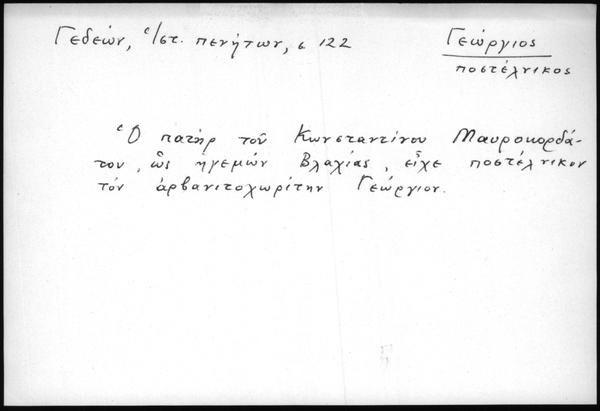 Γεδεών, Ἱστ. πενήτων, σ 122
Γεώργιος
ποστέλνικος
Ὁ πατὴρ τοῦ Κωνσταντίνου Μαυροκορδά-
του, ὡς ἡγεμών Βλαχίας, εἶχε ποστέλνικον
τόν ἀρβανιτοχωρίτην Γεώργιον.